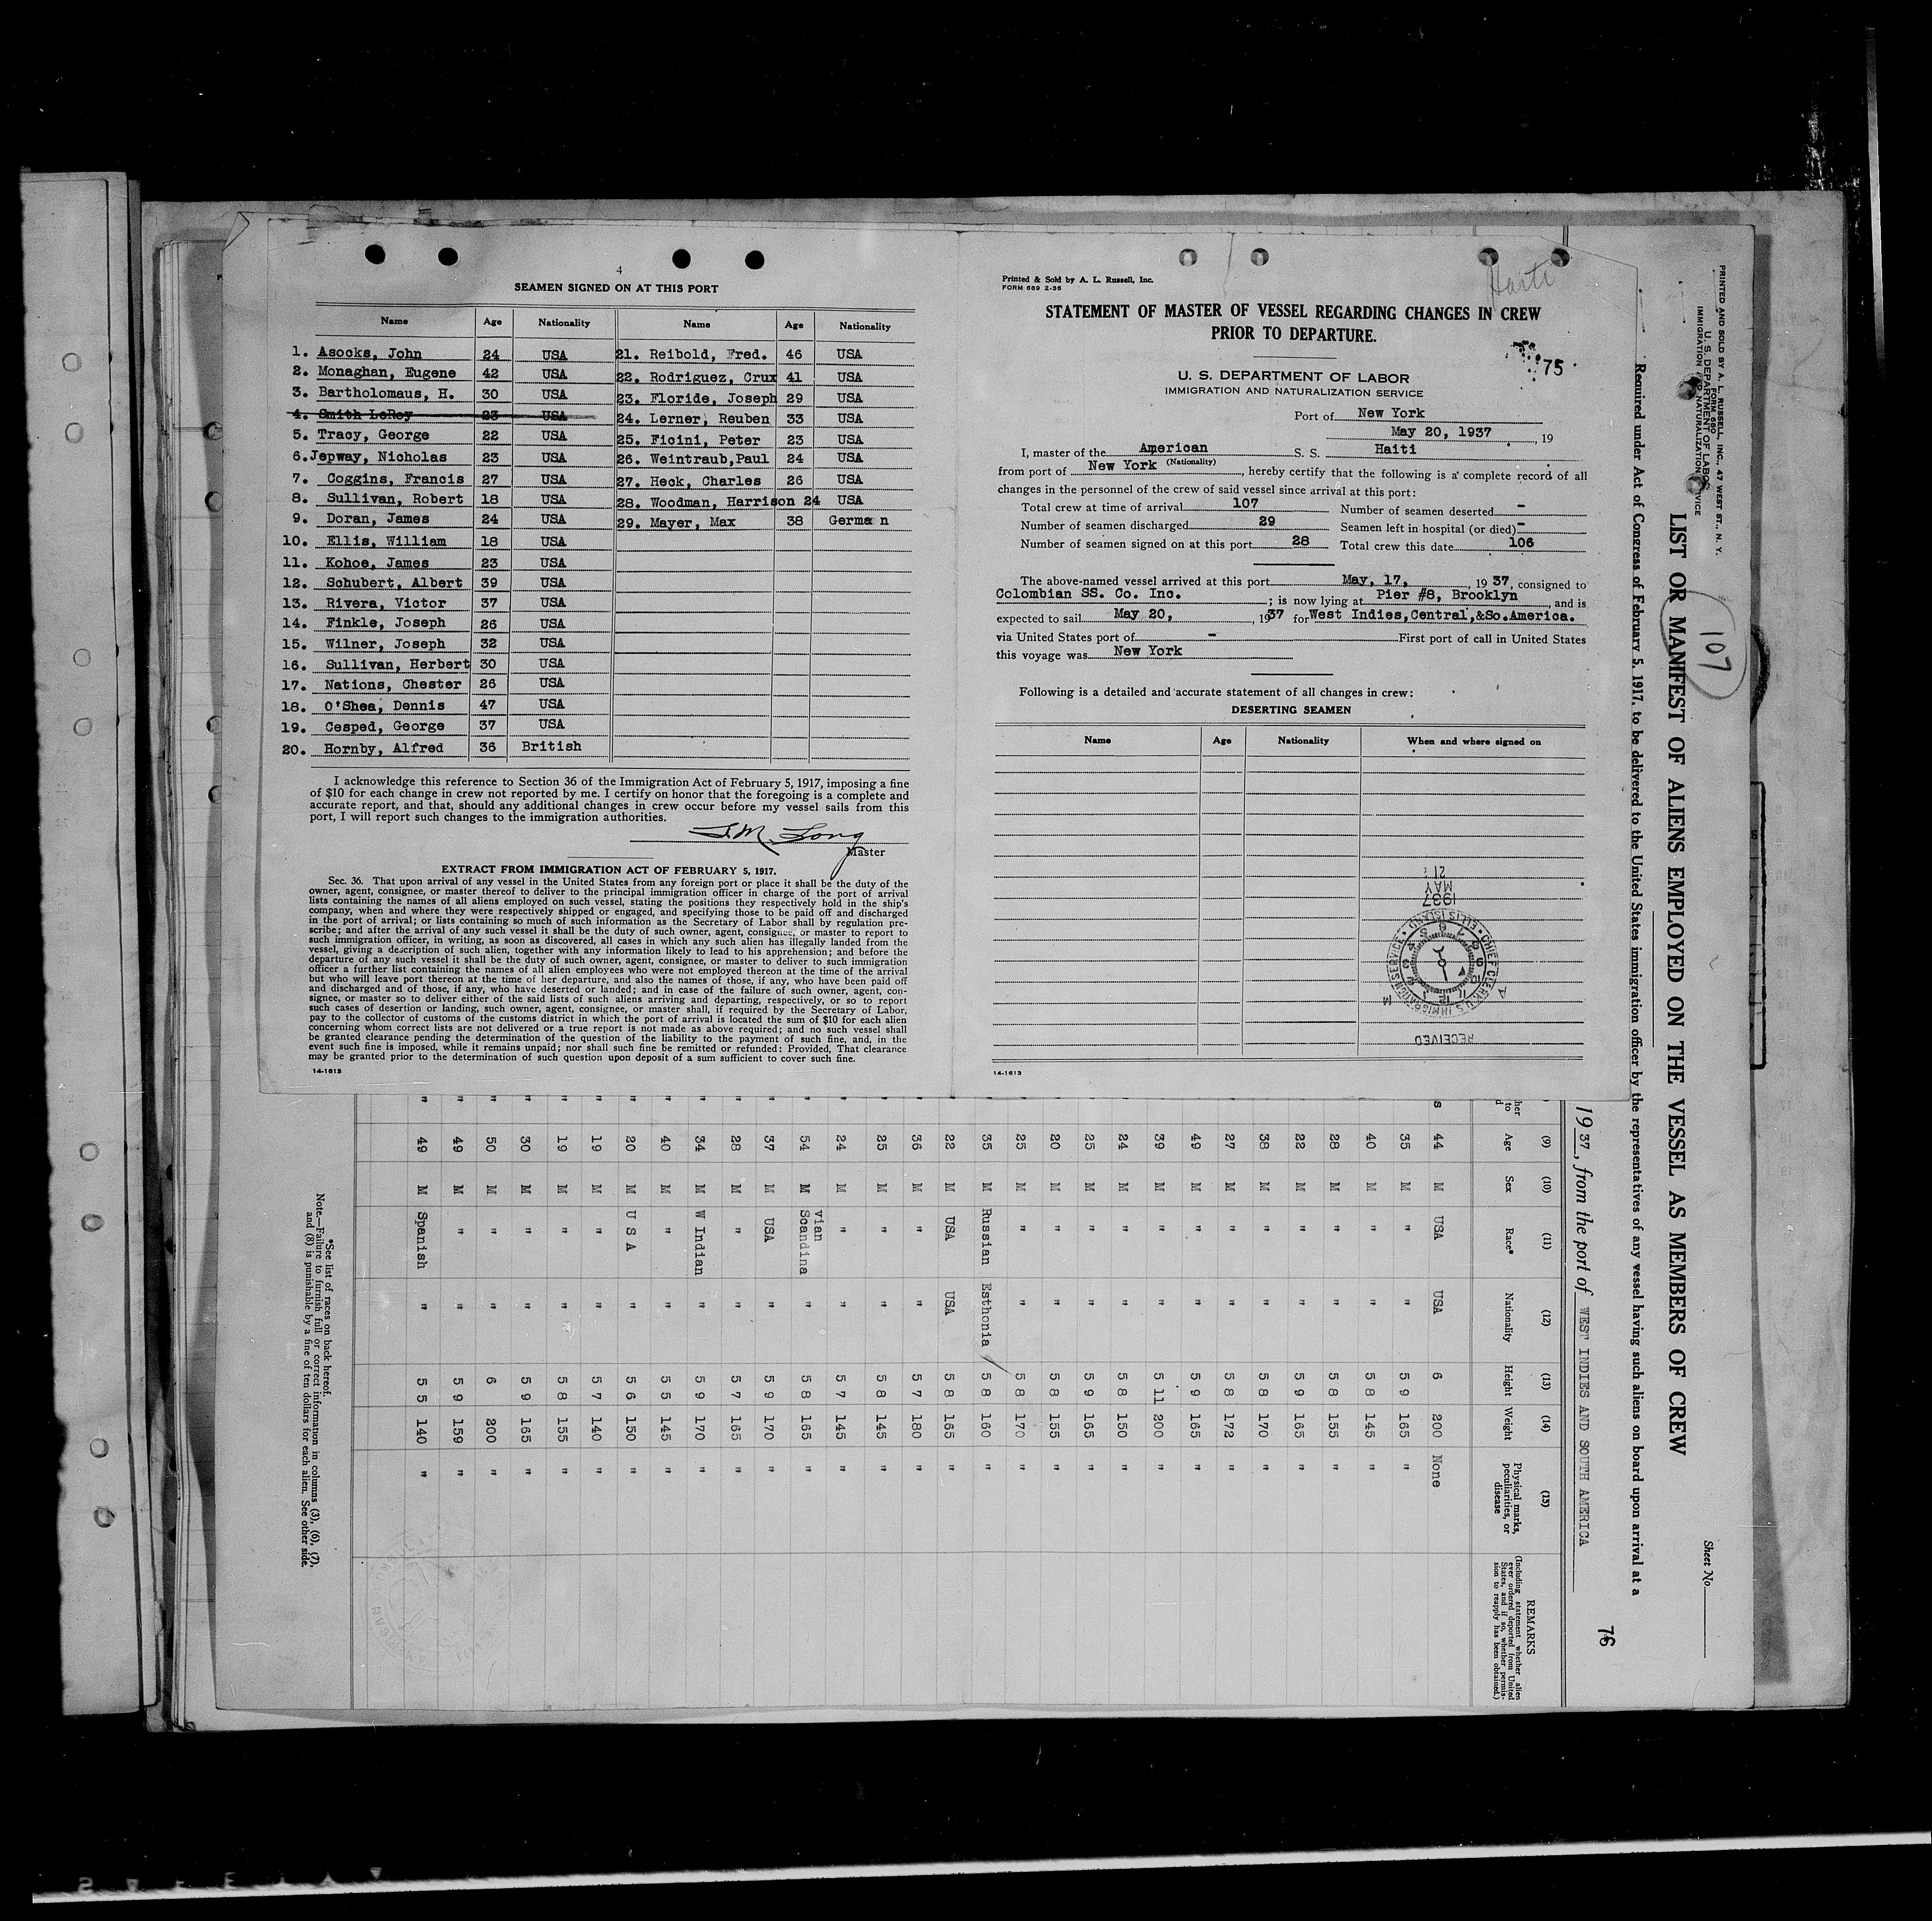 4
SEAMEN SIGNED ON AT THIS PORT
Name Age Nationality Name Age Nationality
1. Asocks, John 24 USA 21. Reibold, Fred. 46 USA
2. Monaghan, Eugene 42 USA 22. Rodriguez, Crux 41 USA
3. Bartholomaus, H. 30 USA 23. Floride, Joseph 29 USA
4. Smith LeRoy 23 USA 24. Lerner, Reuben 33 USA
5. Tracy, George 22 USA 25. Ficini, Peter 23 USA
6. Jepway, Nicholas 23 USA 26. Weintraub,Paul 24 USA
7. Coggins, Francis 27 USA 27. Heck, Charles 26 USA
8. Sullivan, Robert 18 USA 28. Woodman, Harrison 24 USA
9. Doran, James 24 USA 29. Mayer, Max 38 German
10. Ellis, William 18 USA
11. Kohoe, James 23 USA
12. Schubert, Albert 39 USA
13. Rivera, Victor 37 USA
14. Finkle, Joseph 26 USA
15. Wilner, Joseph 32 USA
16. Sullivan, Herbert 30 USA
17. Nations, Chester 26 USA
18. O'Shea, Dennis 47 USA
19. Cesped, George 37 USA
20. Hornby, Alfred 36 British
I acknowledge this reference to Section 36 of the Immigration Act of February 5, 1917, imposing a fine
of $10 for each change in crew not reported by me. I certify on honor that the foregoing is a complete and
accurate report, and that, should any additional changes in crew occur before my vessel sails from this
port, I will report such changes to the immigration authorities.
Long
Master
EXTRACT FROM IMMIGRATION ACT OF FEBRUARY 5, 1917.
Sec. 36. That upon arrival of any vessel in the United States from any foreign port or place it shall be the duty of the
owner, agent, consignee, or master thereof to deliver to the principal immigration officer in charge of the port of arrival
lists containing the names of all aliens employed on such vessel, stating the positions they respectively hold in the ship's
company, when and where they were respectively shipped or engaged, and specifying those to be paid off and discharged
in the port of arrival; or lists containing so much of such information as the Secretary of Labor shall by regulation pre-
scribe; and after the arrival of any such vessel it shall be the duty of such owner, agent, consignee, or master to report to
such immigration officer, in writing, as soon as discovered, all cases in which any such alien has illegally landed from the
vessel, giving a description of such alien, together with any information likely to lead to his apprehension; and before the
departure of any such vessel it shall be the duty of such owner, agent, consignee, or master to deliver to such immigration
officer a further list containing the names of all alien employees who were not employed thereon at the time of the arrival
but who will leave port thereon at the time of her departure, and also the names of those, if any, who have been paid off
and discharged and of those, if any, who have deserted or landed; and in case of the failure of such owner, agent, con-
signee, or master so to deliver either of the said lists of such aliens arriving and departing, respectively, or so to report
such cases of desertion or landing, such owner, agent, consignee, or master shall, if required by the Secretary of Labor,
pay to the collector of customs of the customs district in which the port of arrival is located the sum of $10 for each alien
concerning whom correct lists are not delivered or a true report is not made as above required; and no such vessel shall
be granted clearance pending the determination of the question of the liability to the payment of such fine, and, in the
event such fine is imposed, while it remains unpaid; nor shall such fine be remitted or refunded: Provided, That clearance
may be granted prior to the determination of such question upon deposit of a sum sufficient to cover such fine.
14-1613
Printed & Sold by A. L. Russell, Inc.
FORM 689 2-36
Haiti
STATEMENT OF MASTER OF VESSEL REGARDING CHANGES IN CREW
PRIOR TO DEPARTURE.
75
U. S. DEPARTMENT OF LABOR
IMMIGRATION AND NATURALIZATION SERVICE
Port of New York
May 20, 1937, 19
I, master of the American S. S. Haiti
(Nationality)
from port of New York, hereby certify that the following is a complete record of all
changes in the personnel of the crew of said vessel since arrival at this port:
Total crew at time of arrival 107 Number of seamen deserted -
Number of seamen discharged 29 Seamen left in hospital (or died) -
Number of seamen signed on at this port 28 Total crew this date 106
The above-named vessel arrived at this port May, 17, 1937, consigned to
Colombian SS. Co. Inc.; is now lying at Pier #8, Brooklyn, and is
expected to sail May 20, 1937 for West Indies,Central,&So.America.
via United States port of - First port of call in United States
this voyage was New York
Following is a detailed and accurate statement of all changes in crew:
DESERTING SEAMEN
Name Age Nationality When and where signed on
1937
MAY
21
CHIEF CLERK U.S. IMMIGRATION SERVICE ELLIS ISLAND
RECEIVED
14-1613
PRINTED AND SOLD BY A. L. RUSSELL, INC., 47 WEST ST., N. Y.
FORM 680
U. S. DEPARTMENT OF LABOR
IMMIGRATION AND NATURALIZATION SERVICE
Sheet No.
107
LIST OR MANIFEST OF ALIENS EMPLOYED ON THE VESSEL AS MEMBERS OF CREW
Required under Act of Congress of February 5, 1917, to be delivered to the United States immigration officer by the representatives of any vessel having such aliens on board upon arrival at a
76
1937, from the port of WEST INDIES AND SOUTH AMERICA
(9) (10) (11) (12) (13) (14) (15)
Age Sex Race* Nationality Height Weight Physical marks, peculiarities, or disease
REMARKS
(Including statement whether alien
ever ordered deported from United
States, and if so, whether permis-
sion to reapply has been obtained.)
44 M USA USA 6 200 None
35 M " " 5 9 165 "
40 M " " 5 8 145 "
28 M " " 5 8 155 "
22 M " " 5 9 165 "
38 M " " 5 8 170 "
27 M " " 5 8 172 "
49 M " " 5 9 165 "
39 M " " 5 11 200 "
24 M " " 5 8 150 "
25 M " " 5 9 165 "
20 M " " 5 8 155 "
25 M " " 5 8 170 "
35 M Russian Esthonia 5 8 160 "
22 M USA USA 5 8 165 "
36 M " " 5 7 180 "
25 M " " 5 8 145 "
24 M " " 5 7 145 "
54 M Scandina vian " 5 8 165 "
37 M USA " 5 9 170 "
28 M " " 5 7 165 "
34 M W Indian " 5 9 170 "
40 M " " 5 5 145 "
20 M U S A " 5 6 150 "
19 M " " 5 7 140 "
19 M " " 5 8 155 "
30 M " " 5 9 165 "
50 M " " 6 200 "
49 M " " 5 9 159 "
49 M Spanish " 5 5 140 "
*See list of races on back hereof.
Note.—Failure to furnish full or correct information in columns (3), (6), (7),
and (8) is punishable by a fine of ten dollars for each alien. See other side.